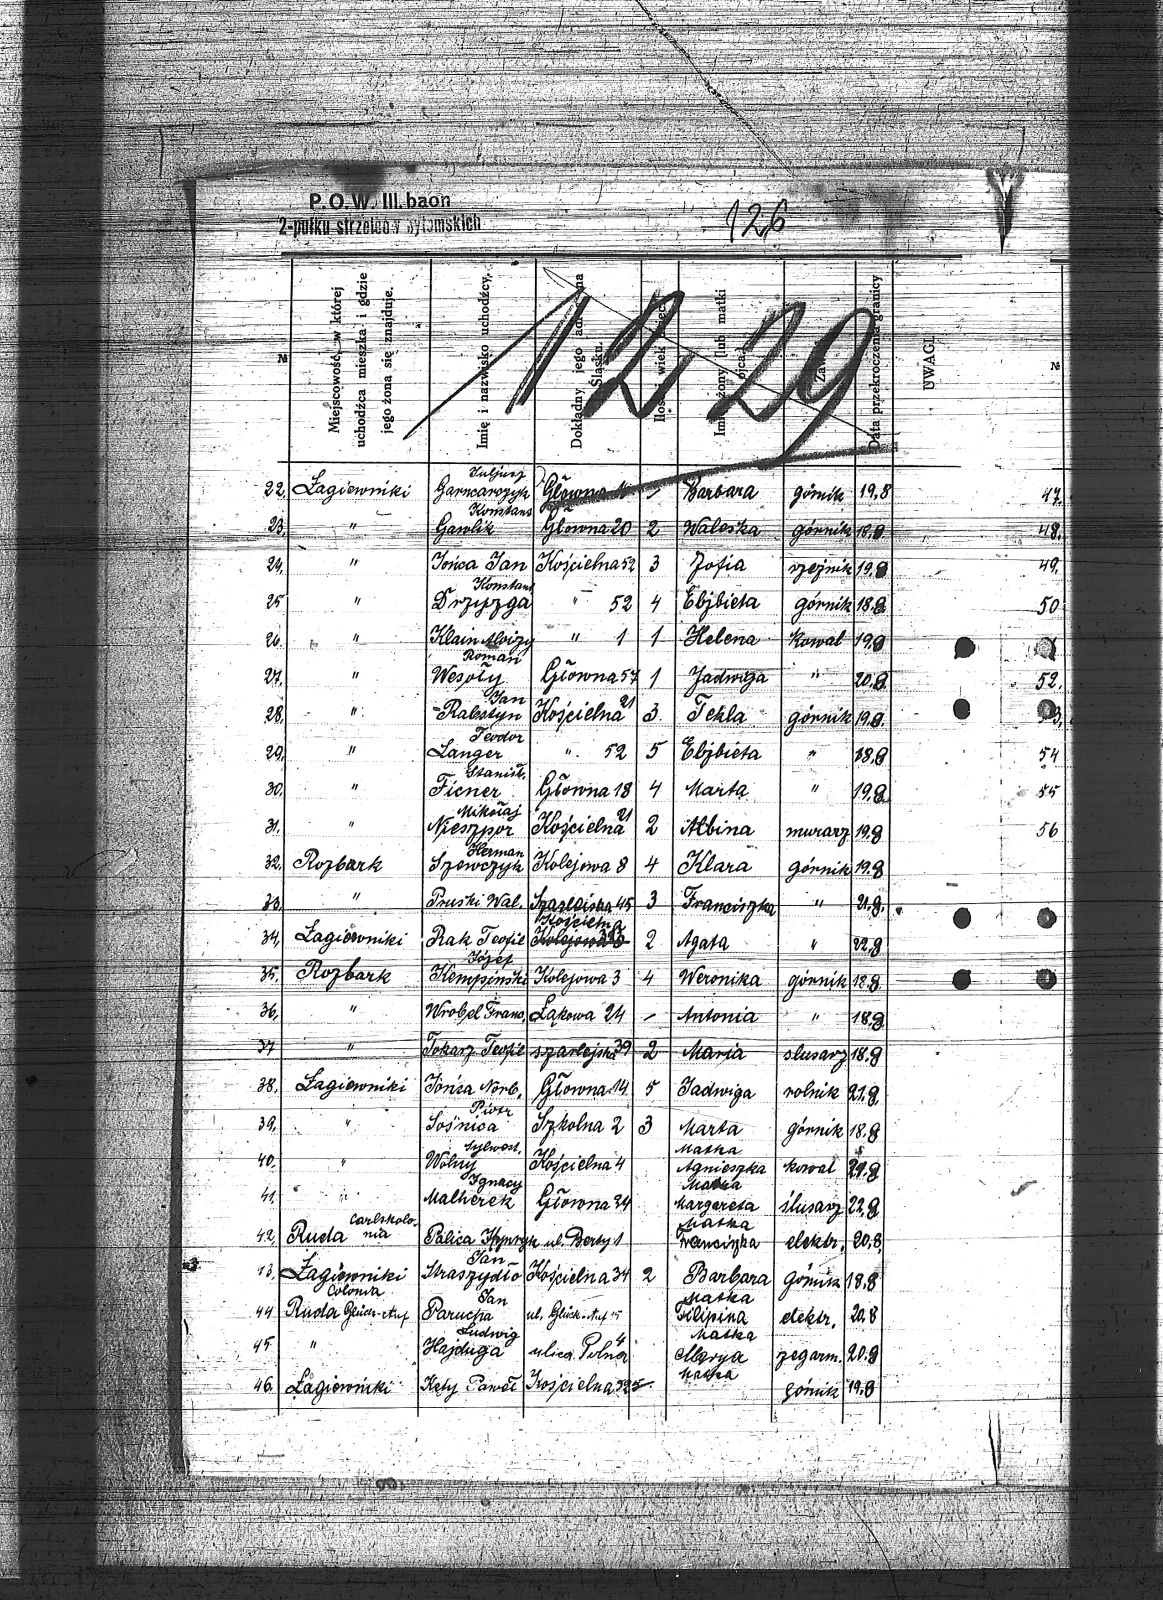 P.O.W. III. baon
2-pułku strzelców bytomskich
126
1229
№ Miejscowość, w której uchodźca mieszka i gdzie jego żona się znajduje. Imię i nazwisko uchodźcy, Dokładny jego na Śląsku. wiek Imię żony lub matki ojca Data przekroczenia granicy UWAGI №
Juljusz
22. Łagiewniki Garncarczyk Główna — Barbara górnik 19.8 47.
Konstant
23. " Gawlik Główna 20 2 Waleska górnik 18.8 48.
24. " Jońca Jan Kościelna 52 3 Zofia rzeźnik 19.8 49.
Konstant
25 " Drzyzga " 52 4 Elżbieta górnik 18.8 50
26. " Klain Aloizy " 1 1 Helena kowal 19.8
Roman
27. " Wesoły Główna 57 1 Jadwiga " 20.8 52.
Jan
28. " Rabstyn Kościelna 21 3. Tekla górnik 19.8 3.
Teodor
29. " Langer " 52 5 Elżbieta " 18.8 54
Stanisł.
30. " Ficner Główna 18 4 Marta " 19.8 55
Mikołaj
31. " Nieszpor Kościelna 21 2 Albina murarz 19.8 56
Herman
32. Rozbark Szewczyk Kolejowa 8 4 Klara górnik 19.8
33. " Pruski Wal. 45 3 Franciszka " 21.8
Kościelna
34. Łagiewniki Rak Teofil Kolejowa 2 Agata " 22.8
Józef
35. Rozbark Kempiński Kolejowa 3 4 Weronika górnik 18.8
36. " Wrobel Franc. Łąkowa 24 — Antonia " 18.8
37 " Tokarz Teofil szarlejska 39 2 Maria slusarz 18.8
38. Łagiewniki Jońca Norb. Główna 14 5 Jadwiga rolnik 21.8
Piotr
39. " Sośnica Szkolna 2 3 Marta górnik 18.8
Sylwest. Matka
40. " Wolny Kościelna 4 Agnieszka kowal 21.8
Ignacy Matka
41. " Malherek Główna 34 Margereta ślusarz 22.8
Carlskolonia Matka
42. Ruda Palica ul. Berty 1 Franciszka elektr. 20.8
Jan
43. Łagiewniki Straszydło Kościelna 34 2 Barbara górnik 18.8
Colonia Jan Matka
44 Ruda Glück-Auf Parucha ul. Glück-Auf 15 Filipina elektr. 20.8
Ludwig Matka
45 " Hajduga ulica Polna 4 Marya zegarm. 20.8
Matka
46. Łagiewniki Kęty Paweł Kościelna górnik 19.8